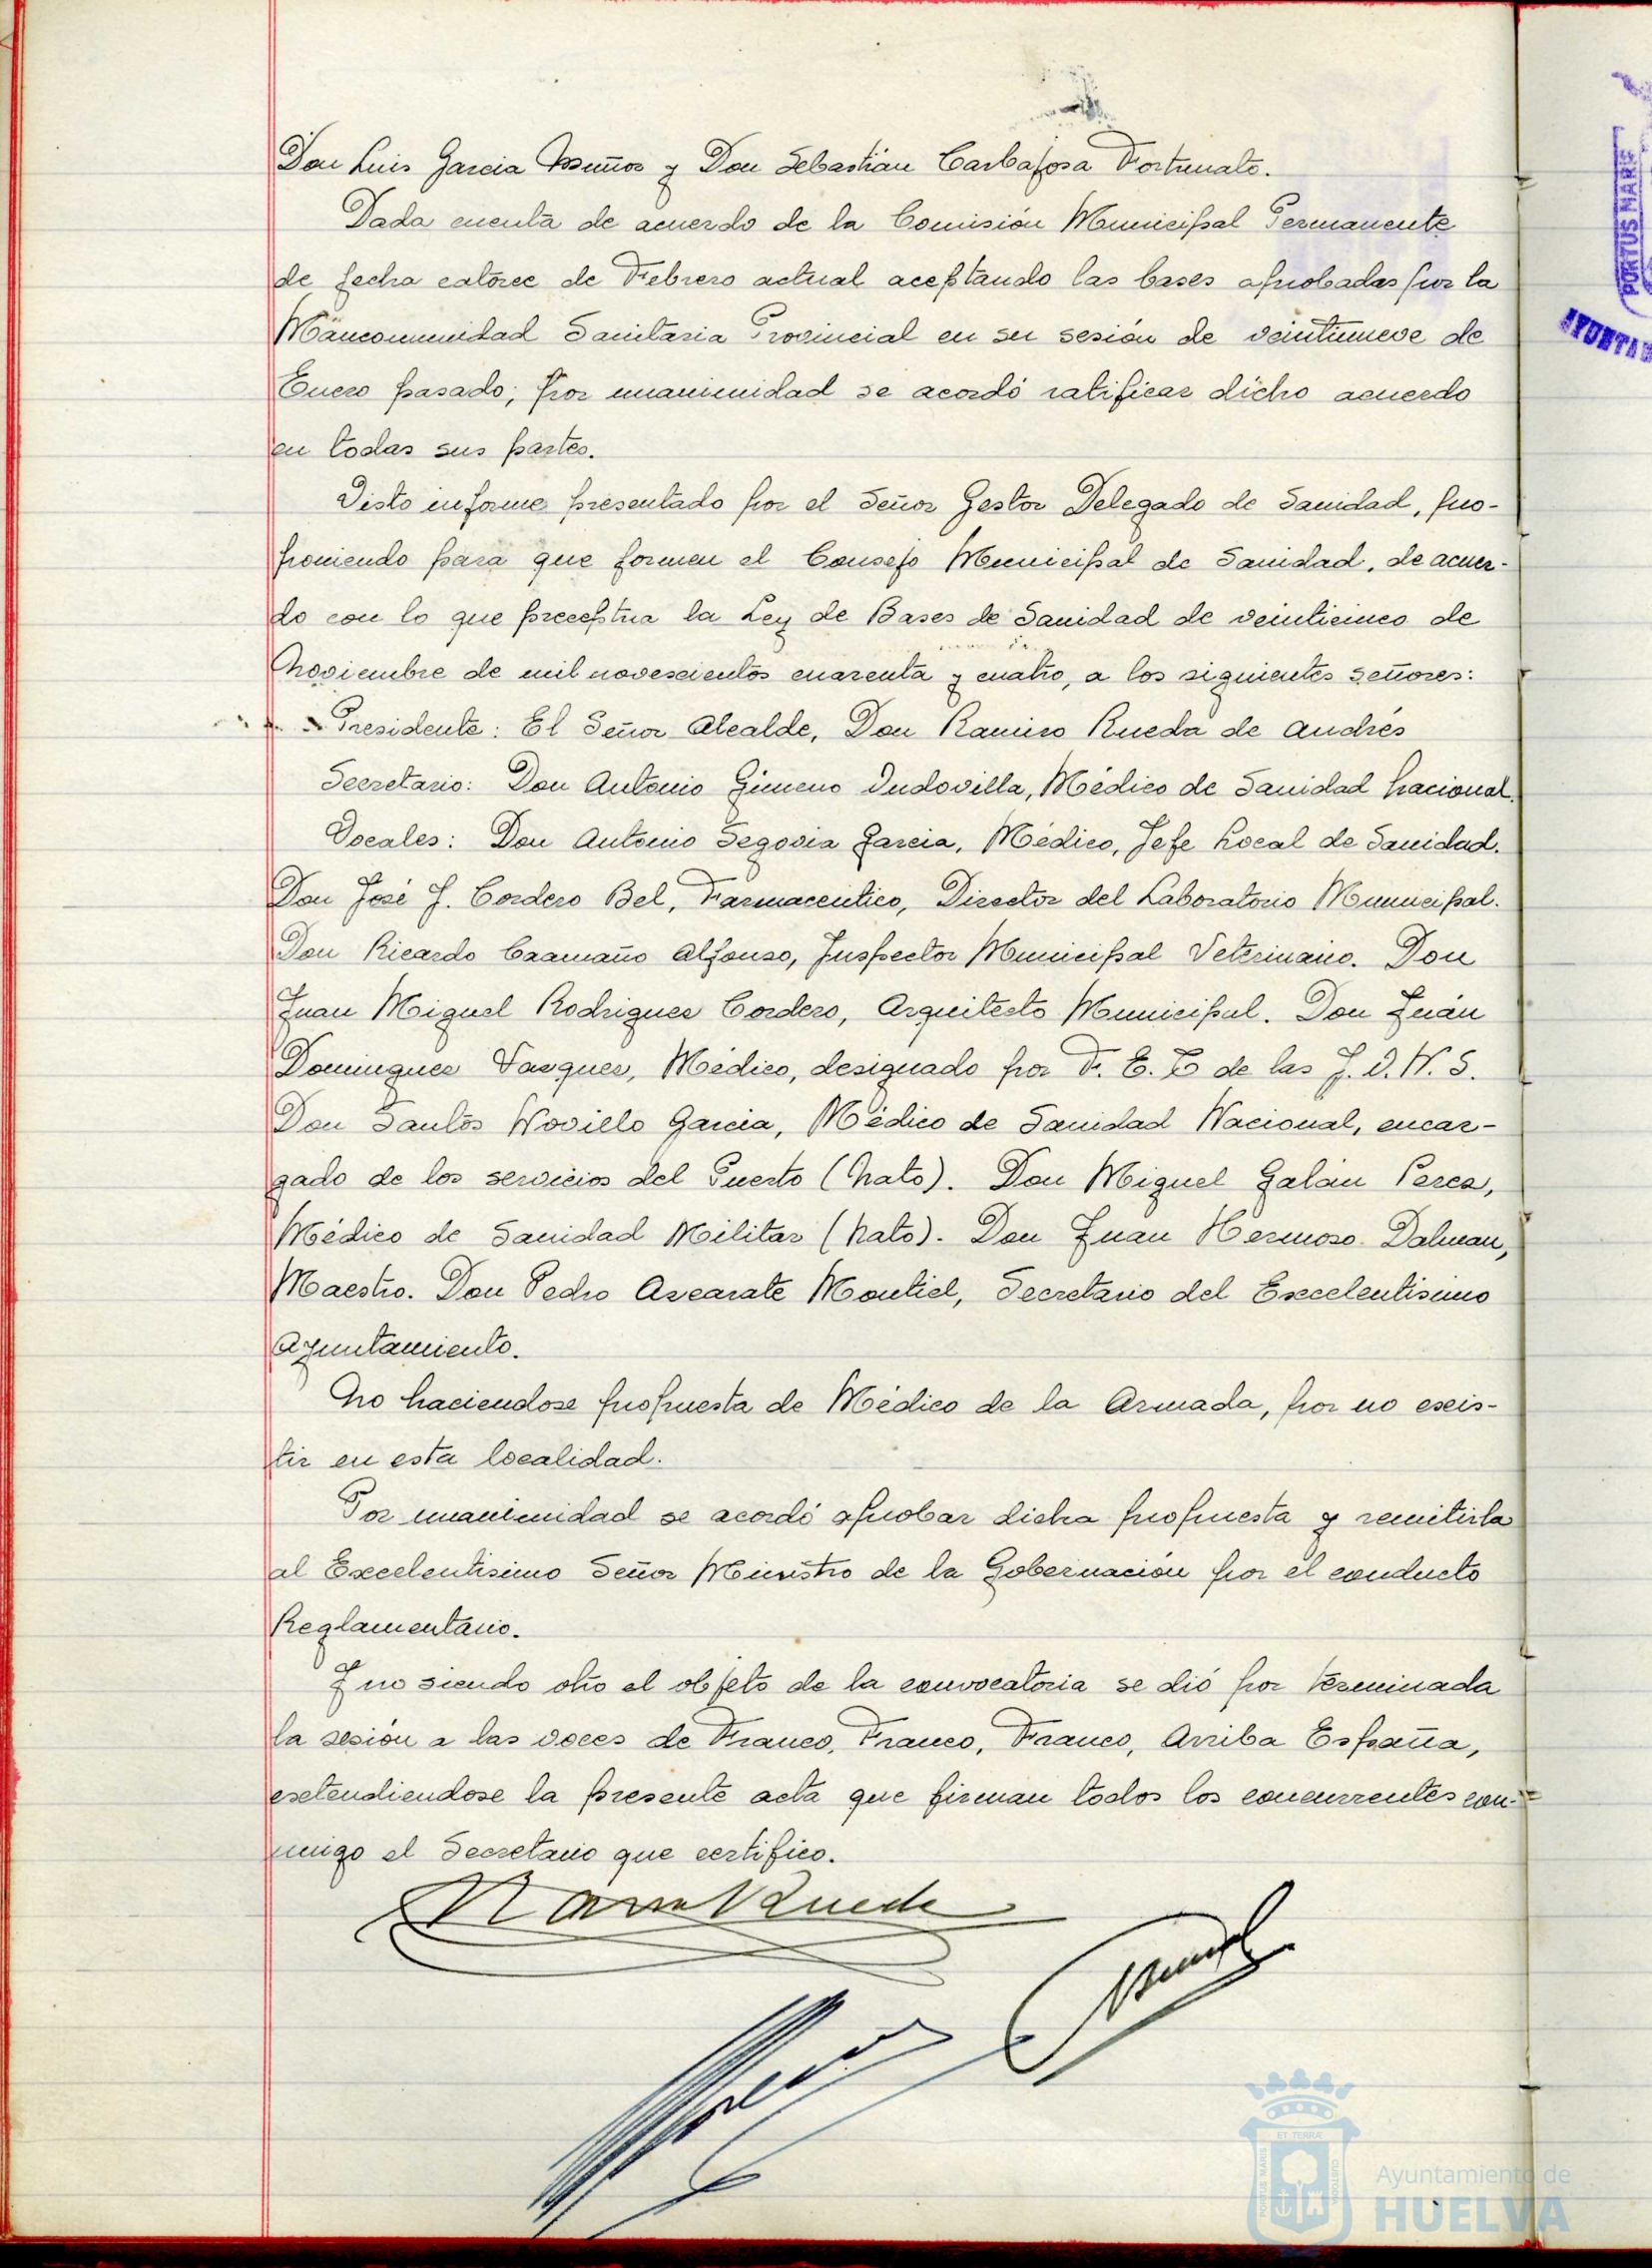 Don Luis Garcia Muñoz y Don Sebastián Carbajosa Fortunato.
Dada cuenta de acuerdo de la Comisión Municipal Permanente
de fecha catorce de Febrero actual aceptando las bases aprobadas por la
Mancomunidad Sanitaria Provincial en su sesión de veintinueve de
Enero pasado; por unanimidad se acordó ratificar dicho acuerdo
en todas sus partes.
Visto informe presentado por el Señor Gestor Delegado de Sanidad, pro-
poniendo para que formen el Consejo Municipal de Sanidad, de acuer-
do con lo que preceptua la Ley de Bases de Sanidad de veinticinco de
Noviembre de mil novescientos cuarenta y cuatro, a los siguientes señores:
Presidente: El Señor Alcalde, Don Ramiro Rueda de Andrés
Secretario: Don Antonio Gimeno Ondovilla, Médico de Sanidad Nacional.
Vocales: Don Antonio Segovia Garcia, Médico, Jefe Local de Sanidad.
Don José J. Cordero Bel, Farmaceútico, Director del Laboratorio Municipal.
Don Ricardo Caamaño Alfonso, Inspector Municipal Veterinario. Don
Juan Miguel Rodriguez Cordero, Arquitecto Municipal. Don Juán
Dominguez Vazquez, Médico, designado por F. E. T. de las J. O. N. S.
Don Santos Novillo Garcia, Médico de Sanidad Nacional, encar-
gado de los servicios del Puerto (Nato). Don Miguel Galán Perez,
Médico de Sanidad Militar (Nato). Don Juan Hermoso Dalman,
Maestro. Don Pedro Azcarate Montiel, Secretario del Excelentisimo
Ayuntamiento.
No haciendose propuesta de Médico de la Armada, por no exis-
tir en esta localidad.
Por unanimidad se acordó aprobar dicha propuesta y remitirla
al Excelentisimo Señor Ministro de la Gobernación por el conducto
Reglamentario.
Y no siendo otro el objeto de la convocatoria se dió por terminada
la sesión a las voces de Franco, Franco, Franco, Arriba España,
extendiendose la presente acta que firman todos los concurrentes con-
migo el Secretario que certifico.
Ram Rueda
PORTUS MARIS
AYUNTA
PORTUS MARIS ET TERRAE CUSTODIA
Ayuntamiento de
HUELVA